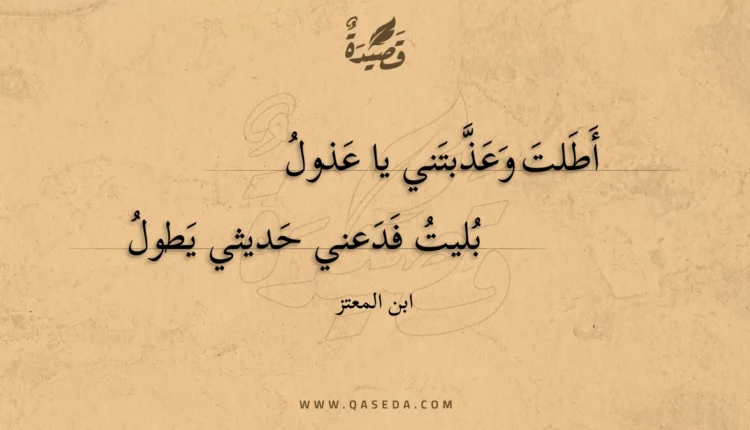 قَصِيْدَةٌ
أَطَلتَ وَعَذَّبتَني يا عَذولُ
بُليتُ فَدَعني حَديثي يَطولُ
ابن المعتز
WWW.QASEDA.COM